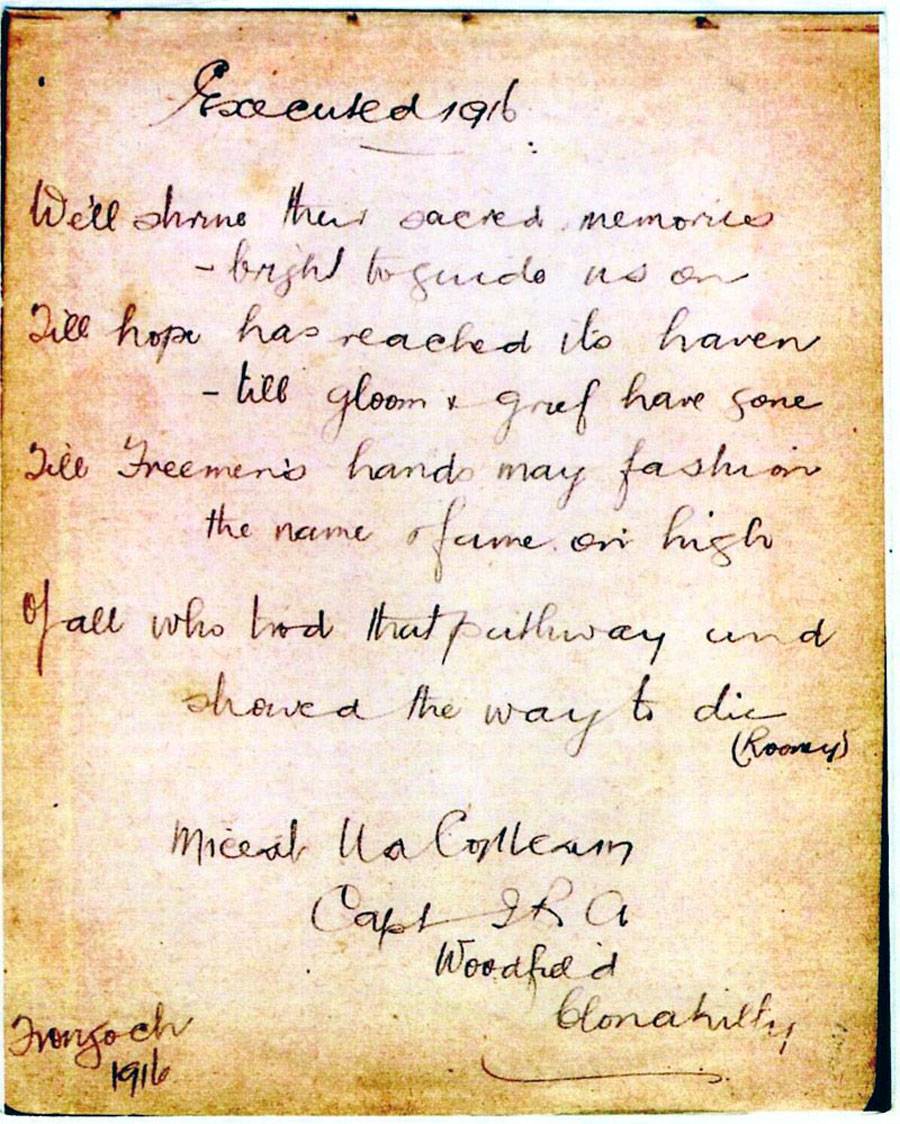 Executed 1916
We'll shrine their sacred memories
- bright to guide us on
Till hope has reached its haven
- till gloom & grief have gone
Till Freemen's hands may fashion
the name of fame on high
Of all who trod that pathway and
showed the way to die
(Rooney)
Miceál Ua Coileain
Capt I R A
Woodfield
Clonakilty
Frongoch
1916